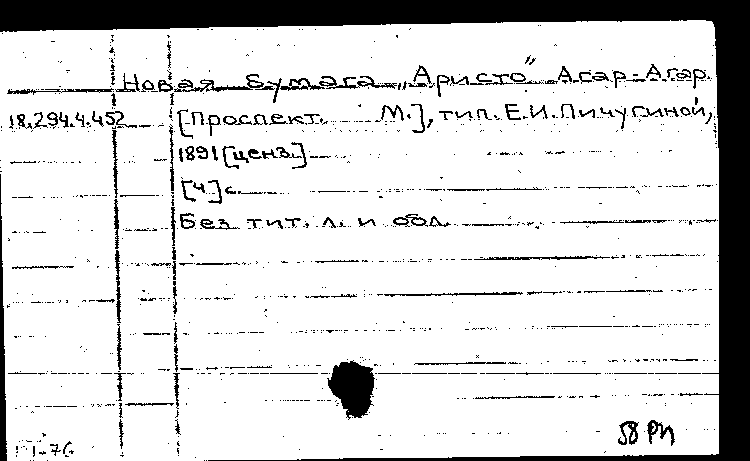 Новая бумага „Аристо" Агар-Агар.
18.294.4.452 [Проспект. М.], тип. Е.И. Пичугиной,
1891 [ценз.]
[4] с.
Без тит. л. и обл.
58 РИ